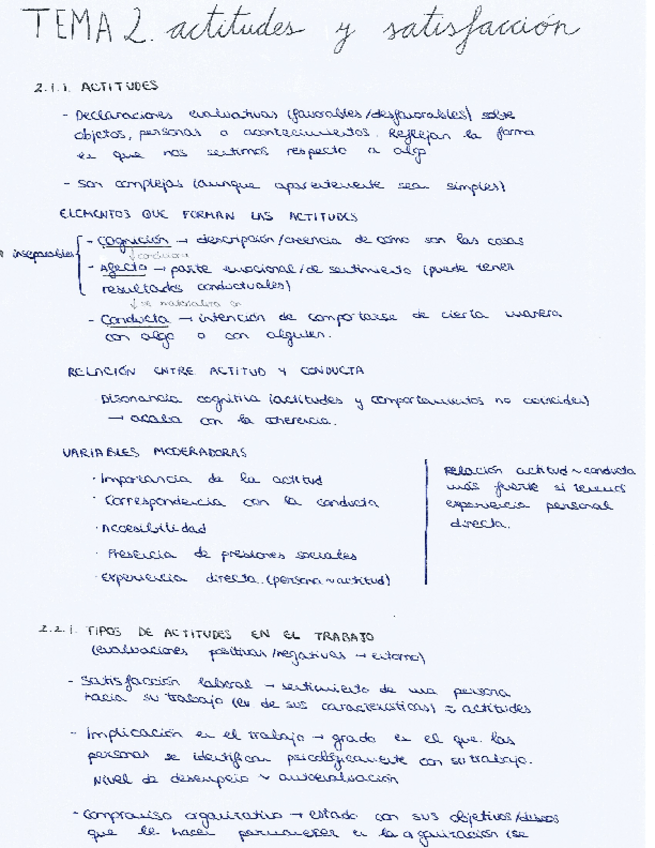 TEMA 2. actitudes y satisfacción
2.1.1. ACTITUDES
- Declaraciones evaluativas (favorables/desfavorables) sobre
objetos, personas o acontecimientos. Reflejan la forma
en que nos sentimos respecto a algo
- Son complejas (aunque aparentemente sean simples)
ELEMENTOS QUE FORMAN LAS ACTITUDES
inseparables
- Cognición → descripción/creencia de cómo son las cosas
↓ condiciona
- Afecto → parte emocional/de sentimiento (puede tener
resultados conductuales)
↓ se materializa en
- Conducta → intención de comportarse de cierta manera
con algo o con alguien.
RELACIÓN ENTRE ACTITUD Y CONDUCTA
Disonancia cognitiva (actitudes y comportamientos no coinciden)
→ acaba con la coherencia.
VARIABLES MODERADORAS
· Importancia de la actitud
· Correspondencia con la conducta
· Accesibilidad
· Presencia de presiones sociales
· Experiencia directa (persona ~ actitud)
Relación actitud ~ conducta
más fuerte si tenemos
experiencia personal
directa.
2.2.1. TIPOS DE ACTITUDES EN EL TRABAJO
(evaluaciones positivas/negativas → entorno)
- Satisfacción laboral → sentimiento de una persona
hacia su trabajo (ev de sus características) = actitudes
- Implicación en el trabajo → grado en el que las
personas se identifican psicológicamente con su trabajo.
Nivel de desempeño ~ autoevaluación
- Compromiso organizativo → estado con sus objetivos/deseos
que le hacen permanecer en la organización (se